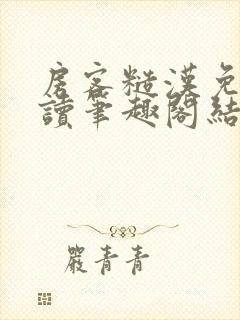 房客糙漢免
讀筆趣閣結
嚴青青